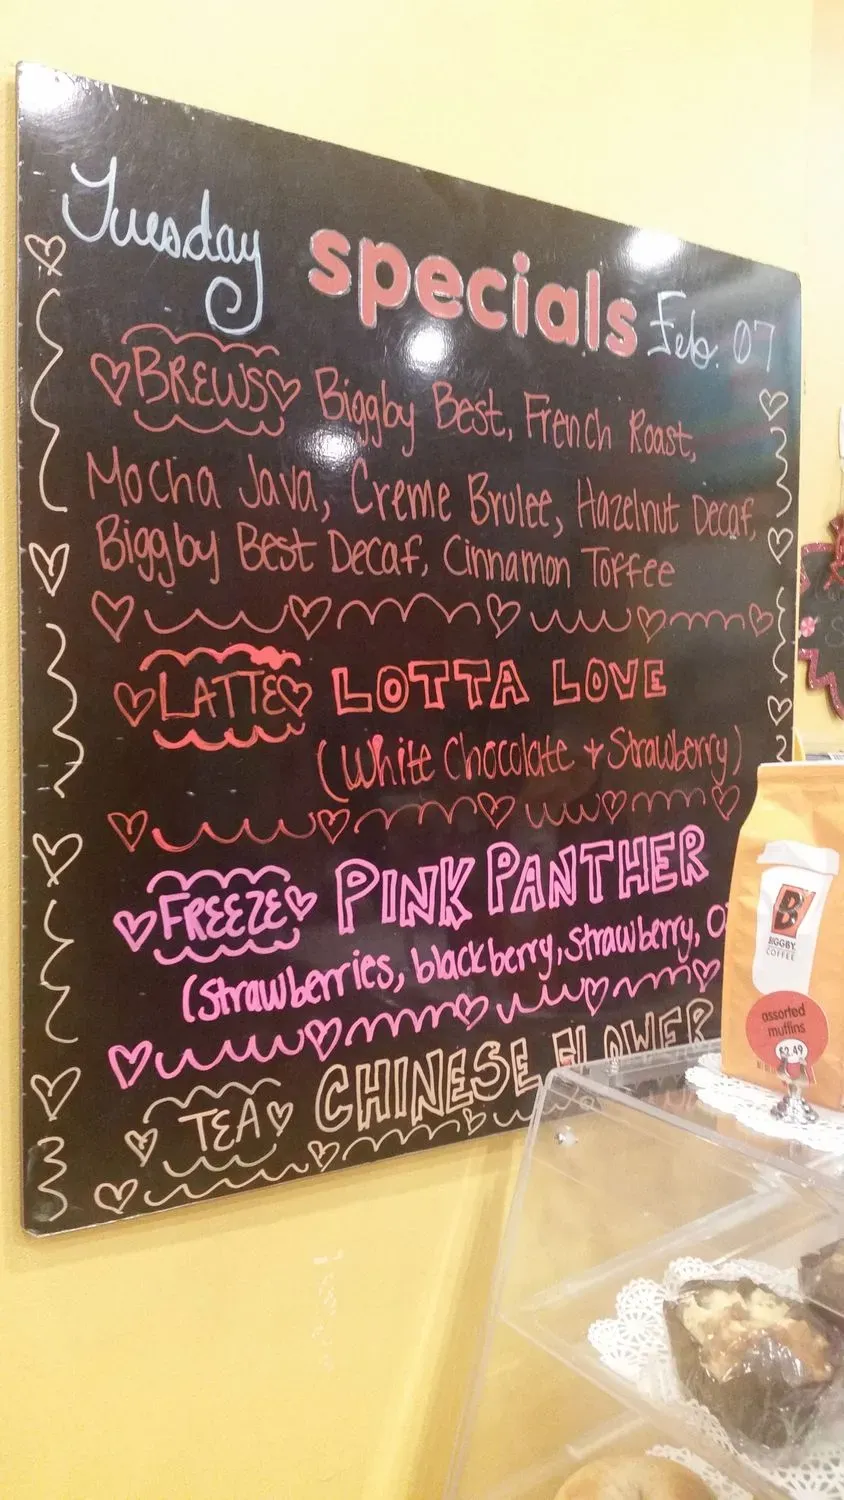 Tuesday specials Feb. 07
BREWS Biggby Best, French Roast,
Mocha Java, Creme Brulee, Hazelnut Decaf,
Biggby Best Decaf, Cinnamon Toffee
LATTE LOTTA LOVE
(White Chocolate + Strawberry)
FREEZE PINK PANTHER
(strawberries, blackberry, strawberry,
TEA CHINESE FLOWER
B
BIGGBY
COFFEE
assorted
muffins
$2.49